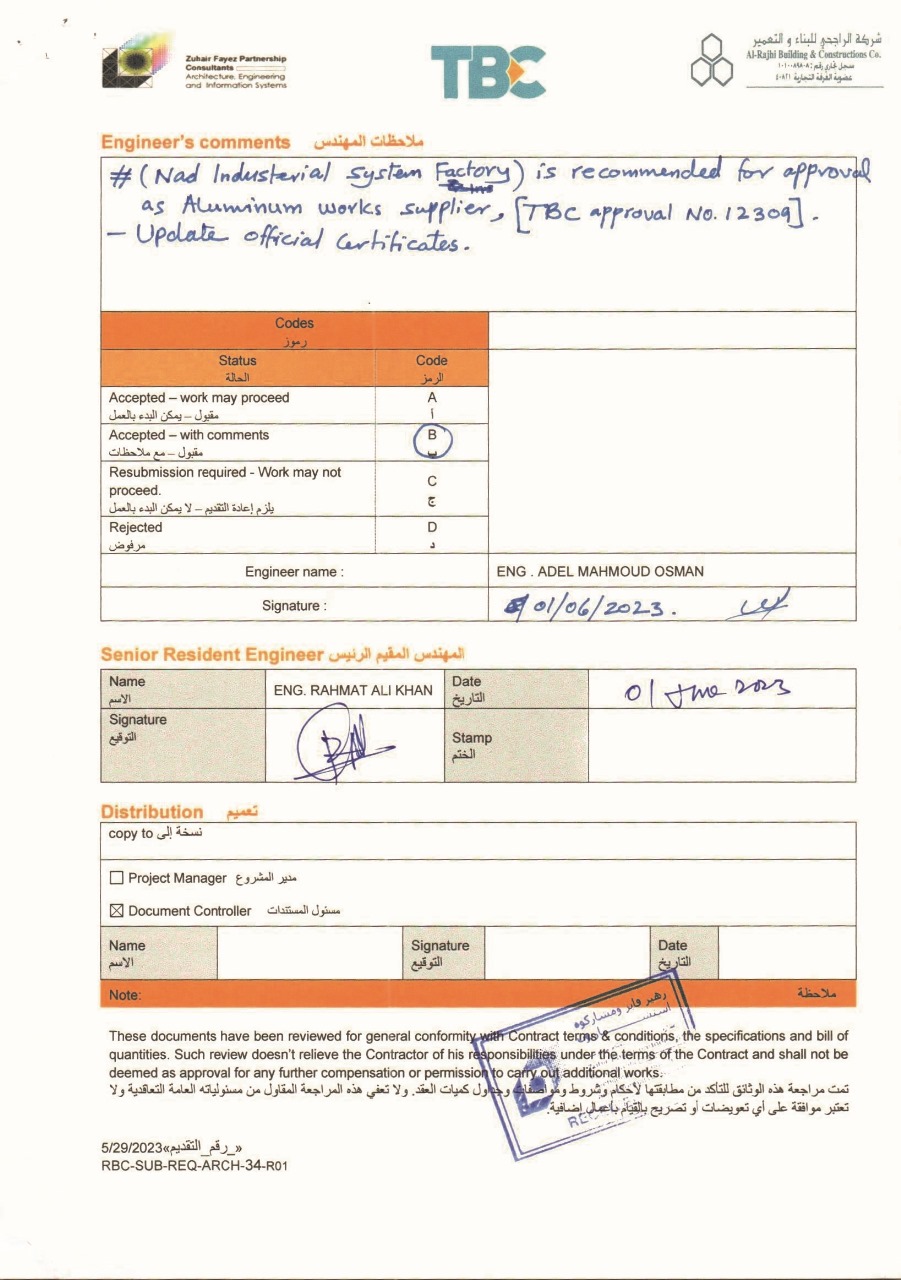 Zuhair Fayez Partnership
Consultants
Architecture, Engineering
and Information Systems
TBC
شركة الراجحي للبناء و التعمير
Al-Rajhi Building & Constructions Co.
Engineer's comments ملاحظات المهندس
# (Nad Industerial System Factory) is recommended for approval
as Aluminum works supplier, [TBC approval No. 12309].
- Update official Certificates.
Codes
رموز
Status Code
الحالة الرمز
Accepted – work may proceed A
مقبول – يمكن البدء بالعمل أ
Accepted – with comments B
مقبول – مع ملاحظات ب
Resubmission required - Work may not
proceed. C
يلزم إعادة التقديم – لا يمكن البدء بالعمل ج
Rejected D
مرفوض د
Engineer name : ENG . ADEL MAHMOUD OSMAN
Signature : 01/06/2023.
Senior Resident Engineer المهندس المقيم الرئيس
Name ENG. RAHMAT ALI KHAN Date 01 June 2023
الاسم التاريخ
Signature Stamp
التوقيع الختم
Distribution تعميم
copy to نسخة إلى
☐ Project Manager مدير المشروع
☒ Document Controller مسئول المستندات
Name Signature Date
الاسم التوقيع التاريخ
Note: ملاحظة
These documents have been reviewed for general conformity with Contract terms & conditions, the specifications and bill of
quantities. Such review doesn't relieve the Contractor of his responsibilities under the terms of the Contract and shall not be
deemed as approval for any further compensation or permission to carry out additional works.
تمت مراجعة هذه الوثائق للتأكد من مطابقتها لأحكام وشروط ومواصفات وجداول كميات العقد. ولا تعفي هذه المراجعة المقاول من مسئولياته العامة التعاقدية ولا
تعتبر موافقة على أي تعويضات أو تصريح بالقيام بأعمال إضافية.
زهير فايز ومشاركوه
5/29/2023«_رقم_التقديم_»
RBC-SUB-REQ-ARCH-34-R01